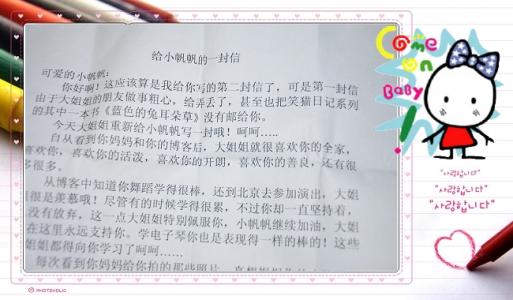 给小帆帆的一封信
可爱的小帆帆：
你好啊！这应该算是我给你写的第二封信了，可是第一封信
由于大姐姐的朋友做事粗心，给弄丢了，甚至也把笑猫日记系列
的其中一本书《蓝色的兔耳朵草》没有邮给你。
今天大姐姐重新给小帆帆写一封哦！呵呵.....
自从看到你妈妈和你的博客后，大姐姐就很喜欢你的全家，
喜欢你，喜欢你的活泼，喜欢你的开朗，喜欢你的善良，还有很
多很多。
从博客中知道你舞蹈学得很棒，还到北京去参加演出，大姐
很是羡慕哦！尽管有的时候学得很累，不过你却一直坚持着，
没有放弃，这一点大姐姐特别佩服你，小帆帆继续加油，大姐
在这里永远支持你。学电子琴你也是表现得一样的棒的！这些
姐姐都得向你学习了呵呵......
每次看到你妈妈给你拍的那些照片，真想
Come
on
Baby
!
"사랑합니다"
"사랑합니다"
"사랑합니다"
PHOTOHOLIC